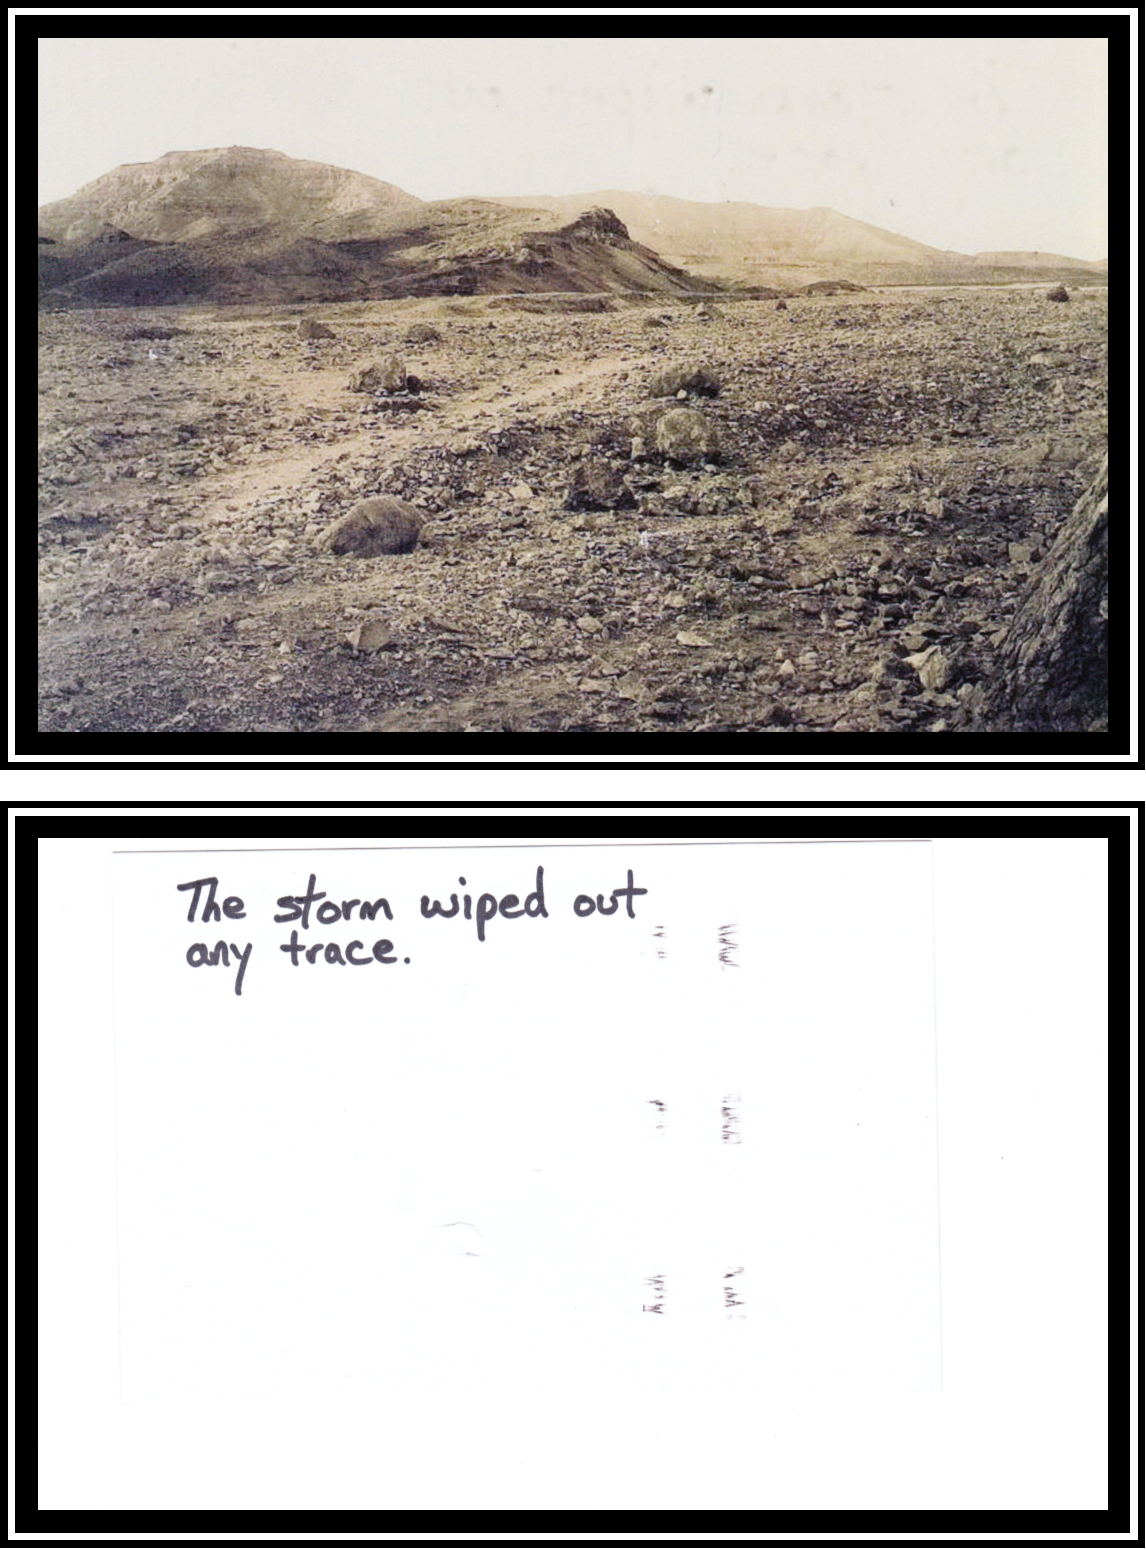 The storm wiped out
any trace.